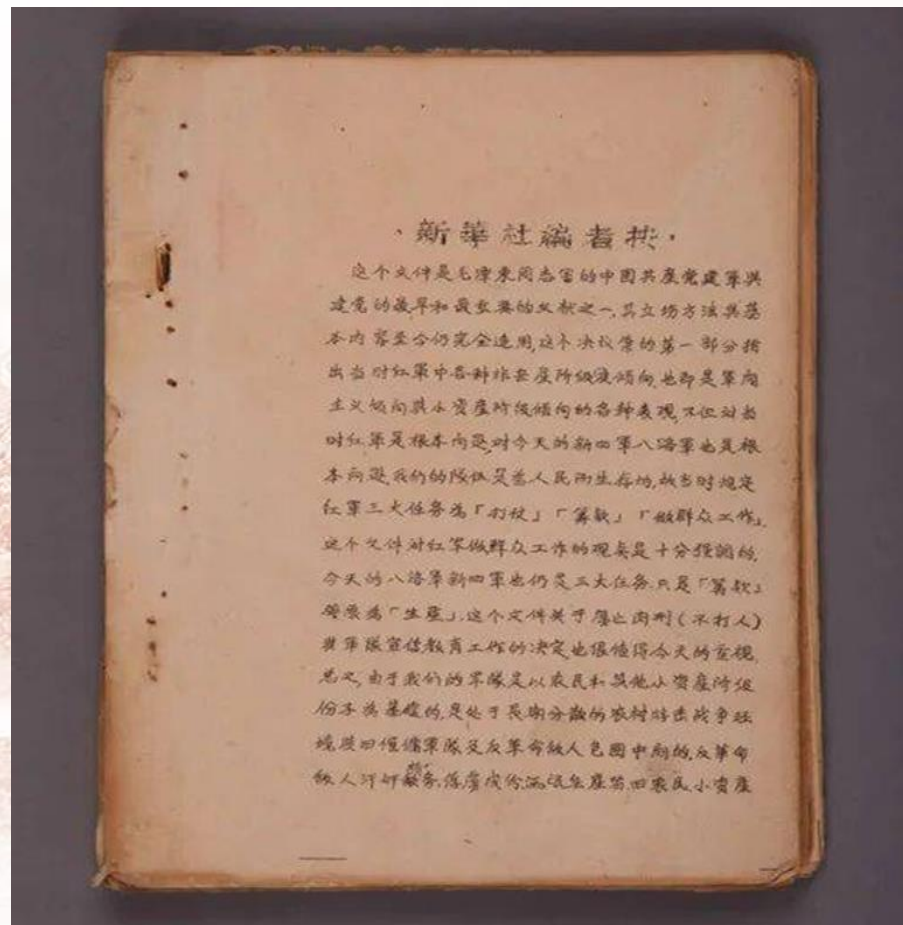 ·新華社编者按·
这个文件是毛澤東同志写的中國共產党建軍與
建党的最早和最重要的文献之一,其立坊方法與基
本内容至今仍完全适用,这个决议案的第一部分指
出当时红軍中各种非無產阶级的傾向,也即是軍阀
主义倾向與小資產阶级倾向的各种表现,不但对当
时红軍是根本问题,对今天的新四軍八路軍也是根
本问题,我们的隊伍是为人民而生存的,故当时规定
红軍三大任务為「打仗」「筹款」「做群众工作」,
这个文件对红军做群众工作的观点是十分强調的,
今天的八路軍新四軍也仍是三大任务,只是「筹款」
為「生產」,这个文件关于废止肉刑(不打人)
與軍隊宣传教育工作的决定,也很值得今天的重视,
总之,由于我们的軍隊是以农民和其他小資產阶级
份子為基礎的,是处于長期分散的农村游击战争环
境及四僞軍隊及反革命敌人包圍中间的,反革命
敌人汗奸特务,俘虏成份,流氓無產,农民小資產